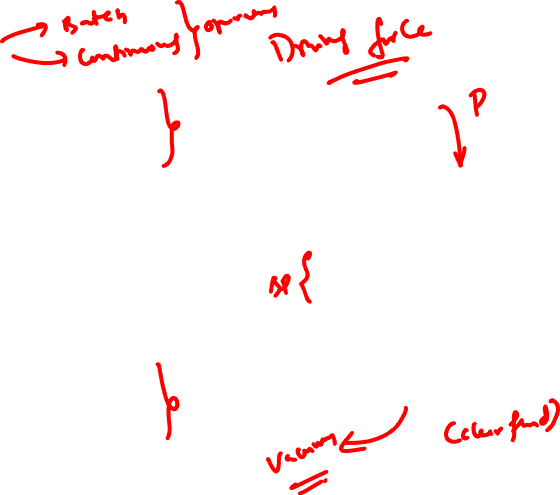 Batch
Continuous } operations
Driving force
P
ΔP {
Vacuum
(clear fluid)